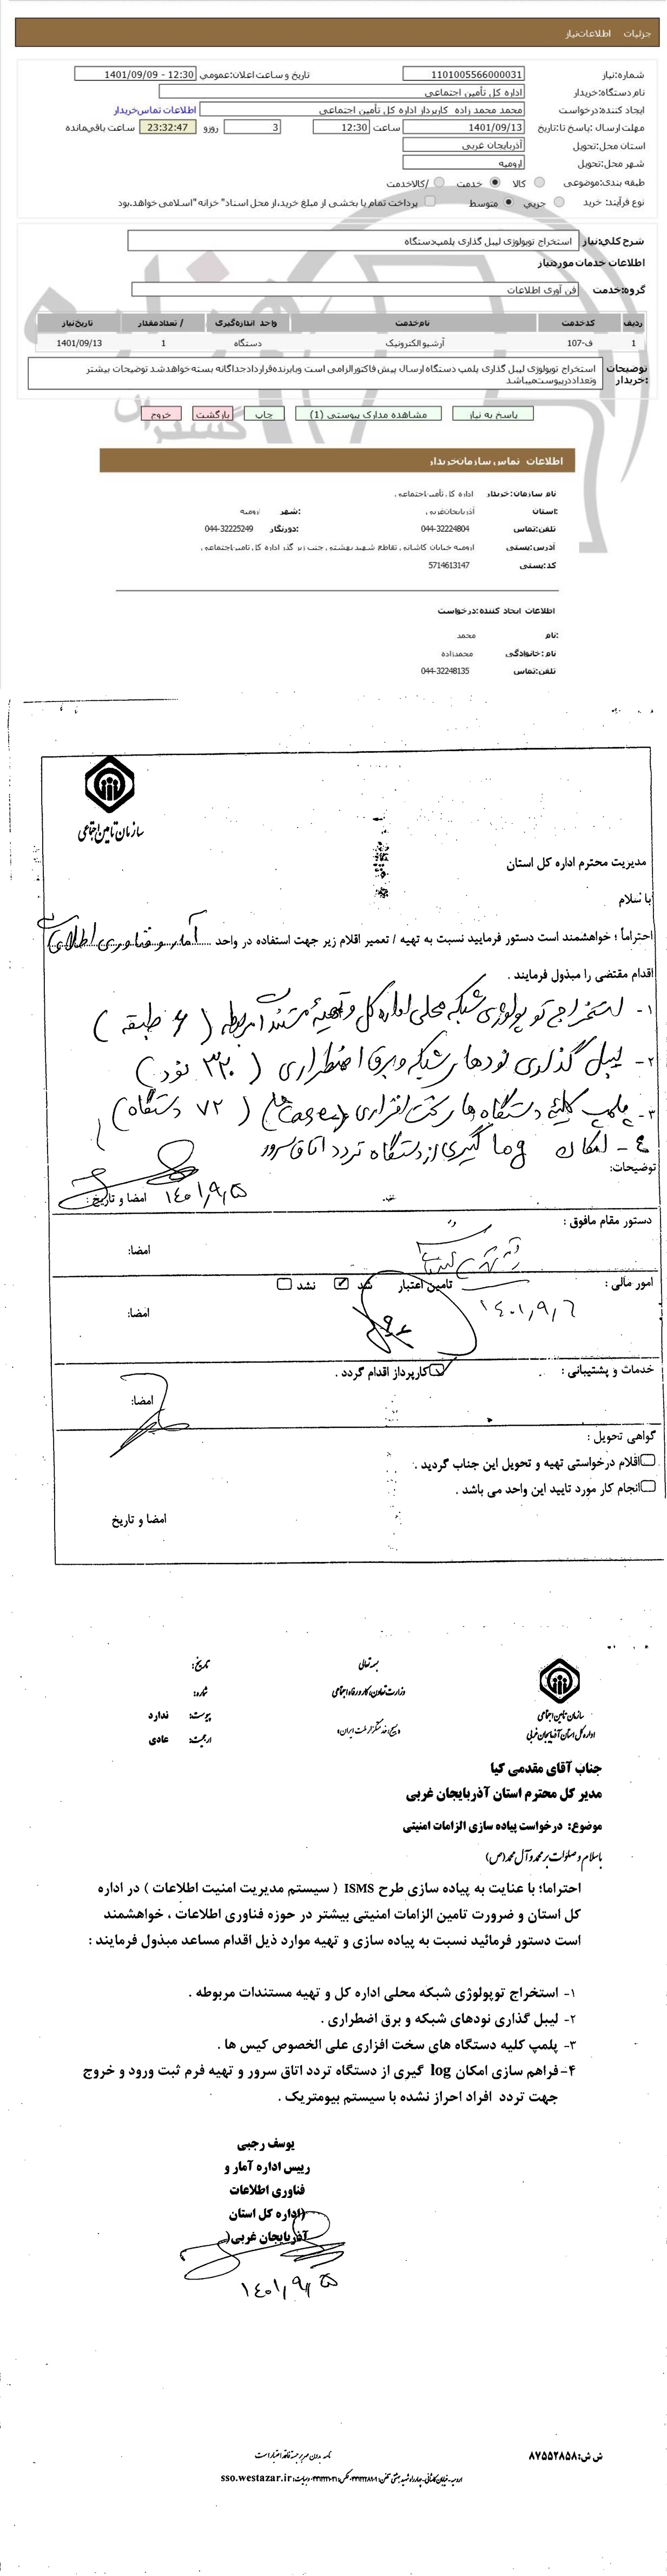 جزئیات اطلاعات‌نیاز
شماره‌نیاز: 1101005566000031 تاریخ و ساعت اعلان:عمومی 12:30 - 1401/09/09
نام‌دستگاه:خریدار اداره کل تأمین اجتماعی
ایجاد کننده:درخواست محمد محمد زاده کاربردار اداره کل تأمین اجتماعی اطلاعات تماس‌خریدار
مهلت ارسال :پاسخ تا:تاریخ 1401/09/13 ساعت 12:30 3 روزو 23:32:47 ساعت باقی‌مانده
استان محل:تحویل آذربایجان غربی
شهر محل:تحویل ارومیه
طبقه بندی:موضوعی کالا خدمت /کالاخدمت
نوع فرآیند: خرید جزیی متوسط پرداخت تمام یا بخشی از مبلغ خرید،از محل اسناد" خزانه "اسلامی خواهد.بود
شرح کلی‌:نیاز استخراج توپولوژی لیبل گذاری پلمپ‌دستگاه
اطلاعات خدمات موردنیاز
گروه:خدمت فن آوری اطلاعات
ردیف کدخدمت نام‌خدمت واحد اندازه‌گیری / تعدادمقدار تاریخ‌نیاز
1 ف-107 آرشیو الکترونیک دستگاه 1 1401/09/13
توضیحات :خریدار استخراج توپولوژی لیبل گذاری پلمپ دستگاه ارسال پیش فاکتورالزامی است وبابرنده‌قراردادجداگانه بسته خواهدشد توضیحات بیشتر
وتعداددرپیوست‌میباشد
پاسخ به نیاز مشاهده مدارک پیوستی (1) چاپ بازگشت خروج
اطلاعات تماس سازمان‌خریدار
نام سازمان:خریدار اداره کل تأمین‌اجتماعی
:استان آذربایجان‌غربی :شهر ارومیه
تلفن:تماس 044-32224804 :دورنگار 044-32225249
آدرس:پستی ارومیه خیابان کاشانی تقاطع شهید بهشتی جنب زیر گذر اداره کل تامین‌اجتماعی
کد:پستی 5714613147
اطلاعات ایجاد کننده:درخواست
:نام محمد
نام :خانوادگی محمدزاده
تلفن:تماس 044-32248135
سازمان تامین اجتماعی
مدیریت محترم اداره کل استان
با سلام
احتراماً ؛ خواهشمند است دستور فرمایید نسبت به تهیه / تعمیر اقلام زیر جهت استفاده در واحد آمار و فناوری اطلاعات
اقدام مقتضی را مبذول فرمایند .
۱- استخراج توپولوژی شبکه محلی اداره کل و تهیه مستندات مربوطه ( ۶ طبقه )
۲- لیبل گذاری نودهای شبکه و برق اضطراری ( ۳۲۰ نود )
۳- پلمپ کلیه دستگاه های سخت افزاری (Case ها) ( ۷۲ دستگاه )
۴- امکان log گیری از دستگاه تردد اتاق سرور
توضیحات:
امضا و تاریخ : ۱۴۰۱/۹/۵
دستور مقام مافوق :
امضا:
امور مالی : تامین اعتبار شد نشد
۱۴۰۱/۹/۶
امضا:
خدمات و پشتیبانی : کارپرداز اقدام گردد .
امضا:
گواهی تحویل :
اقلام درخواستی تهیه و تحویل این جناب گردید .
انجام کار مورد تایید این واحد می باشد .
امضا و تاریخ
بسمه تعالی
وزارت تعاون، کار و رفاه اجتماعی
سازمان تامین اجتماعی
اداره کل استان آذربایجان غربی
تاریخ:
شماره:
پیوست: ندارد
ارجعیت: عادی
جناب آقای مقدمی کیا
مدیر کل محترم استان آذربایجان غربی
موضوع: درخواست پیاده سازی الزامات امنیتی
باسلام و صلوات بر محمد و آل محمد(ص)
احتراما؛ با عنایت به پیاده سازی طرح ISMS ( سیستم مدیریت امنیت اطلاعات ) در اداره
کل استان و ضرورت تامین الزامات امنیتی بیشتر در حوزه فناوری اطلاعات ، خواهشمند
است دستور فرمائید نسبت به پیاده سازی و تهیه موارد ذیل اقدام مساعد مبذول فرمایند :
۱- استخراج توپولوژی شبکه محلی اداره کل و تهیه مستندات مربوطه .
۲- لیبل گذاری نودهای شبکه و برق اضطراری .
۳- پلمپ کلیه دستگاه های سخت افزاری علی الخصوص کیس ها .
۴-فراهم سازی امکان log گیری از دستگاه تردد اتاق سرور و تهیه فرم ثبت ورود و خروج
جهت تردد افراد احراز نشده با سیستم بیومتریک .
یوسف رجبی
رییس اداره آمار و
فناوری اطلاعات
(اداره کل استان
آذربایجان غربی(
۱۴۰۱/۹/۵
ش ش:۸۷۵۵۲۸۵۸
نامه بدون مهر برجسته فاقد اعتبار است
sso.westazar.ir